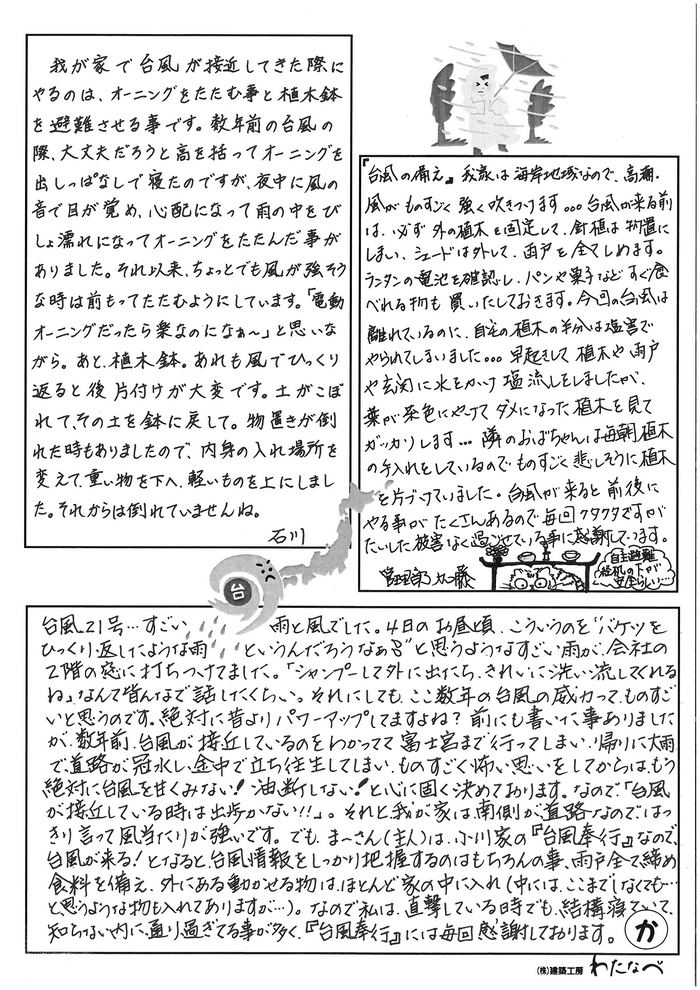 我が家で台風が接近してきた際に
やるのは、オーニングをたたむ事と植木鉢
を避難させる事です。数年前の台風の
際、大丈夫だろうと高を括ってオーニングを
出しっぱなしで寝たのですが、夜中に風の
音で目が覚め、心配になって雨の中をび
しょ濡れになってオーニングをたたんだ事が
ありました。それ以来、ちょっとでも風が強そう
な時は前もってたたむようにしています。「電動
オーニングだったら楽なのになぁ〜」と思いな
がら。あと、植木鉢。あれも風でひっくり
返ると後片付けが大変です。土がこぼ
れて、その土を鉢に戻して。物置きが倒
れた時もありましたので、内身の入れ場所を
変えて、重い物を下へ、軽いものを上にしまし
た。それからは倒れていませんね。
石川
『台風の備え』我家は海岸地域なので、高潮、
風がものすごく強く吹きつけます。。。台風が来る前
は、必ず外の植木を固定して、針槙は物置に
しまい、シェードは外して、雨戸を全てしめます。
ランタンの電池を確認し、パンや菓子などすぐ食
べれる物も買いたしておきます。今回の台風は
離れているのに、自宅の植木の半分は塩害で
やられてしまいました。。。早起きして植木や雨戸
や玄関に水をかけ塩流しをしましたが、
葉が茶色にやけてダメになった植木を見て
ガッカリします… 隣のおばちゃんは毎朝植木
の手入れをしているのでものすごく悲しそうに植木
を片づけていました。台風が来ると前後に
やる事がたくさんあるので毎回クタクタですが
たいした被害なく過ごせている事に感謝しています。
管理部 加藤
自主避難
机の下が
安全らしい…
台
台風21号…すごい雨と風でした。4日のお昼頃、こういうのを"バケツを
ひっくり返したような雨"というんだろうなぁ〜と思うようなすごい雨が、会社の
2階の窓に打ちつけてました。「シャンプーして外に出たら、きれいに洗い流してくれる
ね」なんて皆んなで話したくらい。それにしても、ここ数年の台風の威力って、ものすご
いと思うのです。絶対に昔よりパワーアップしてますよね？前にも書いた事ありました
が、数年前、台風が接近しているのをわかってて富士宮まで行ってしまい、帰りに大雨
で、道路が冠水し、途中で立ち往生してしまい、ものすごく怖い思いをしてからは、もう
絶対に台風を甘くみない！油断しない！と心に固く決めております。なので「台風
が接近している時は出歩かない!!」。それと我が家は南側が道路なので、はっ
きり言って風当たりが強いです。でも、ま〜さん(主人)は、小川家の『台風奉行』なので、
台風が来る！となると台風情報をしっかり把握するのはもちろんの事、雨戸全て締め
食料を備え、外にある動かせる物は、ほとんど家の中に入れ(中には、ここまでしなくても…
と思うような物も入れてありますが…)。なので私は、直撃している時でも、結構寝ていて、
知らない内に、通り過ぎてる事が多く、『台風奉行』には毎回感謝しております。 か
(株)建築工房 わたなべ